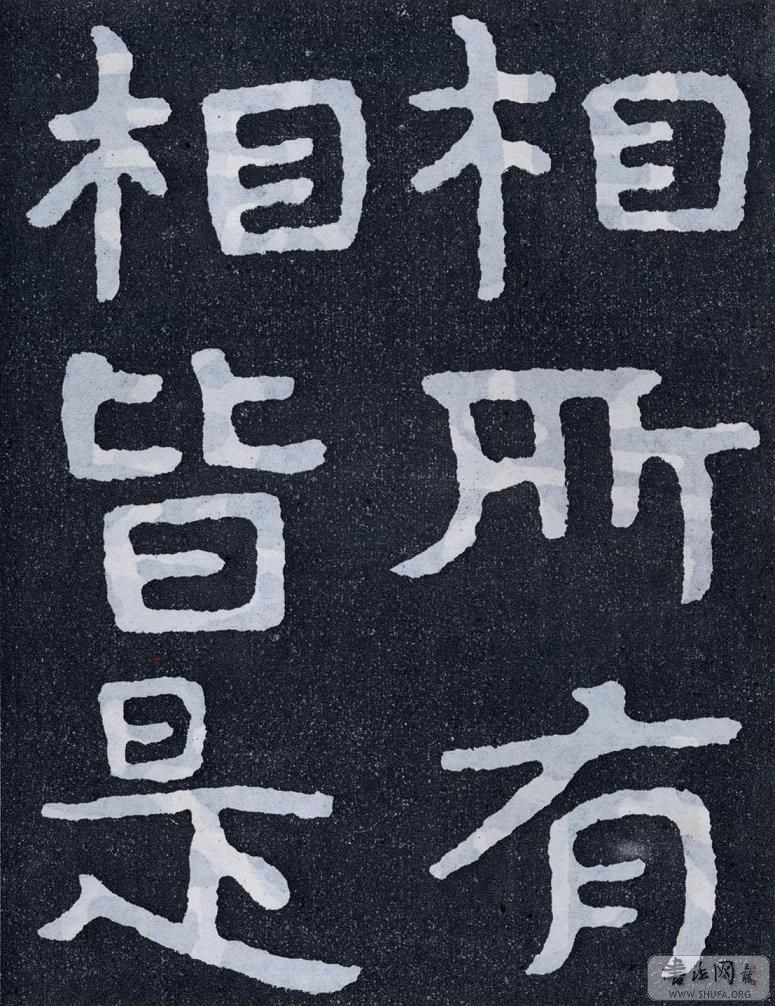 相所有
相皆是
書法网
WWW.SHUFA.ORG